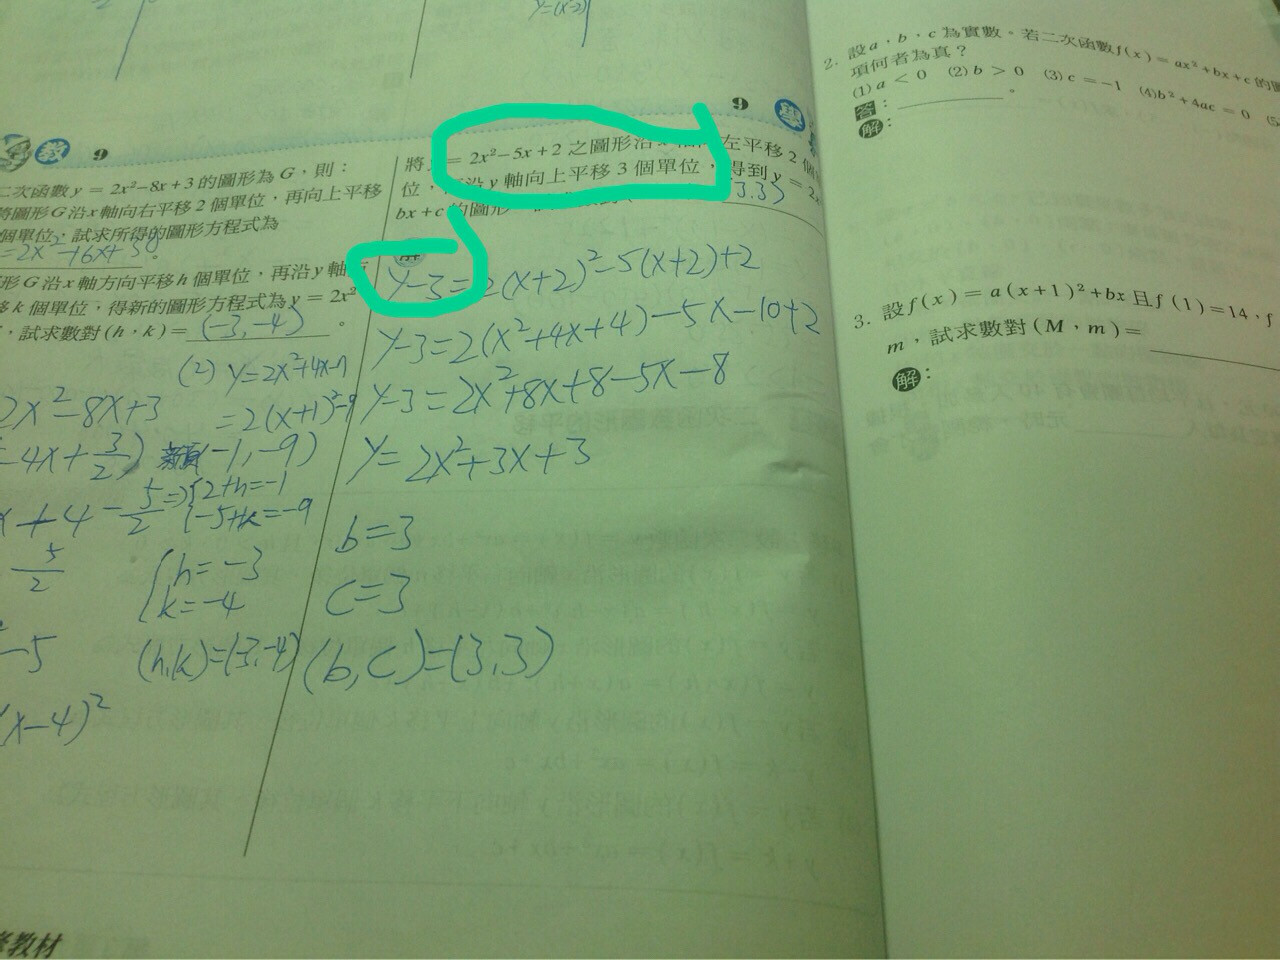 y=(x-2)
教 9
二次函數 y = 2x²−8x+3 的圖形為 G,則:
將圖形 G 沿 x 軸向右平移 2 個單位,再向上平移
個單位,試求所得的圖形方程式為
形 G 沿 x 軸方向平移 h 個單位,再沿 y 軸
移 k 個單位,得新的圖形方程式為 y = 2x²
,試求數對 (h,k) = (-3,-4) 。
(2) y=2x²+4x-7
=2(x+1)²-9
2x²-8x+3
-4x+3/2) (-1,-9)
x+4-5/2 ⇒{2+h=-1
-5+k=-9
5/2
{h=-3
k=-4
-5 (h,k)=(-3,-4)
(x-4)²
9 學
將 y = 2x²−5x+2 之圖形沿 左平移 2 個
位, 沿 y 軸向上平移 3 個單位,得到 y = 2x
bx+c 的圖形 3.3)
解
y-3=2(x+2)²-5(x+2)+2
y-3=2(x²+4x+4)-5x-10+2
y-3=2x²+8x+8-5x-8
y=2x²+3x+3
b=3
c=3
(b,c)=(3,3)
教材
2. 設 a,b,c 為實數。若二次函數 f(x) = ax²+bx+c 的圖
項何者為真?
(1) a < 0 (2) b > 0 (3) c = −1 (4) b²+4ac = 0 (5
答: 。
解:
3. 設 f(x) = a(x+1)²+bx 且 f(1)=14,f
m,試求數對 (M,m) =
解: